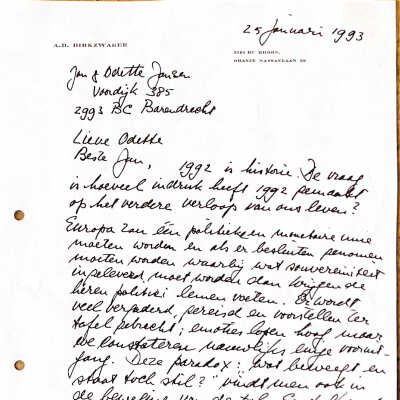 25 januari 1993
A.D. BIRKZWAGER
ORANJE NASSAULAAN
Jan & Odette Jansen
Voordijk 385
2993 BC Barendrecht
Lieve Odette
Beste Jan, 1992 is historie. De vraag
is hoeveel indruk heeft 1992 gemaakt
op het verdere verloop van ons leven?
Europa zou één politieke en monetaire unie
moeten worden en als er besluiten genomen
moeten worden waarbij wat souvereiniteit
ingeleverd moet worden dan krijgen de
heren politici lemen voeten. Er wordt
veel vergaderd, gereisd en voorstellen ter
tafel gebracht, emoties lopen hoog, maar
we constateren nauwelijks enige vooruit-
gang. Deze paradox: "wat beweegt en
staat toch stil?" vindt men ook in